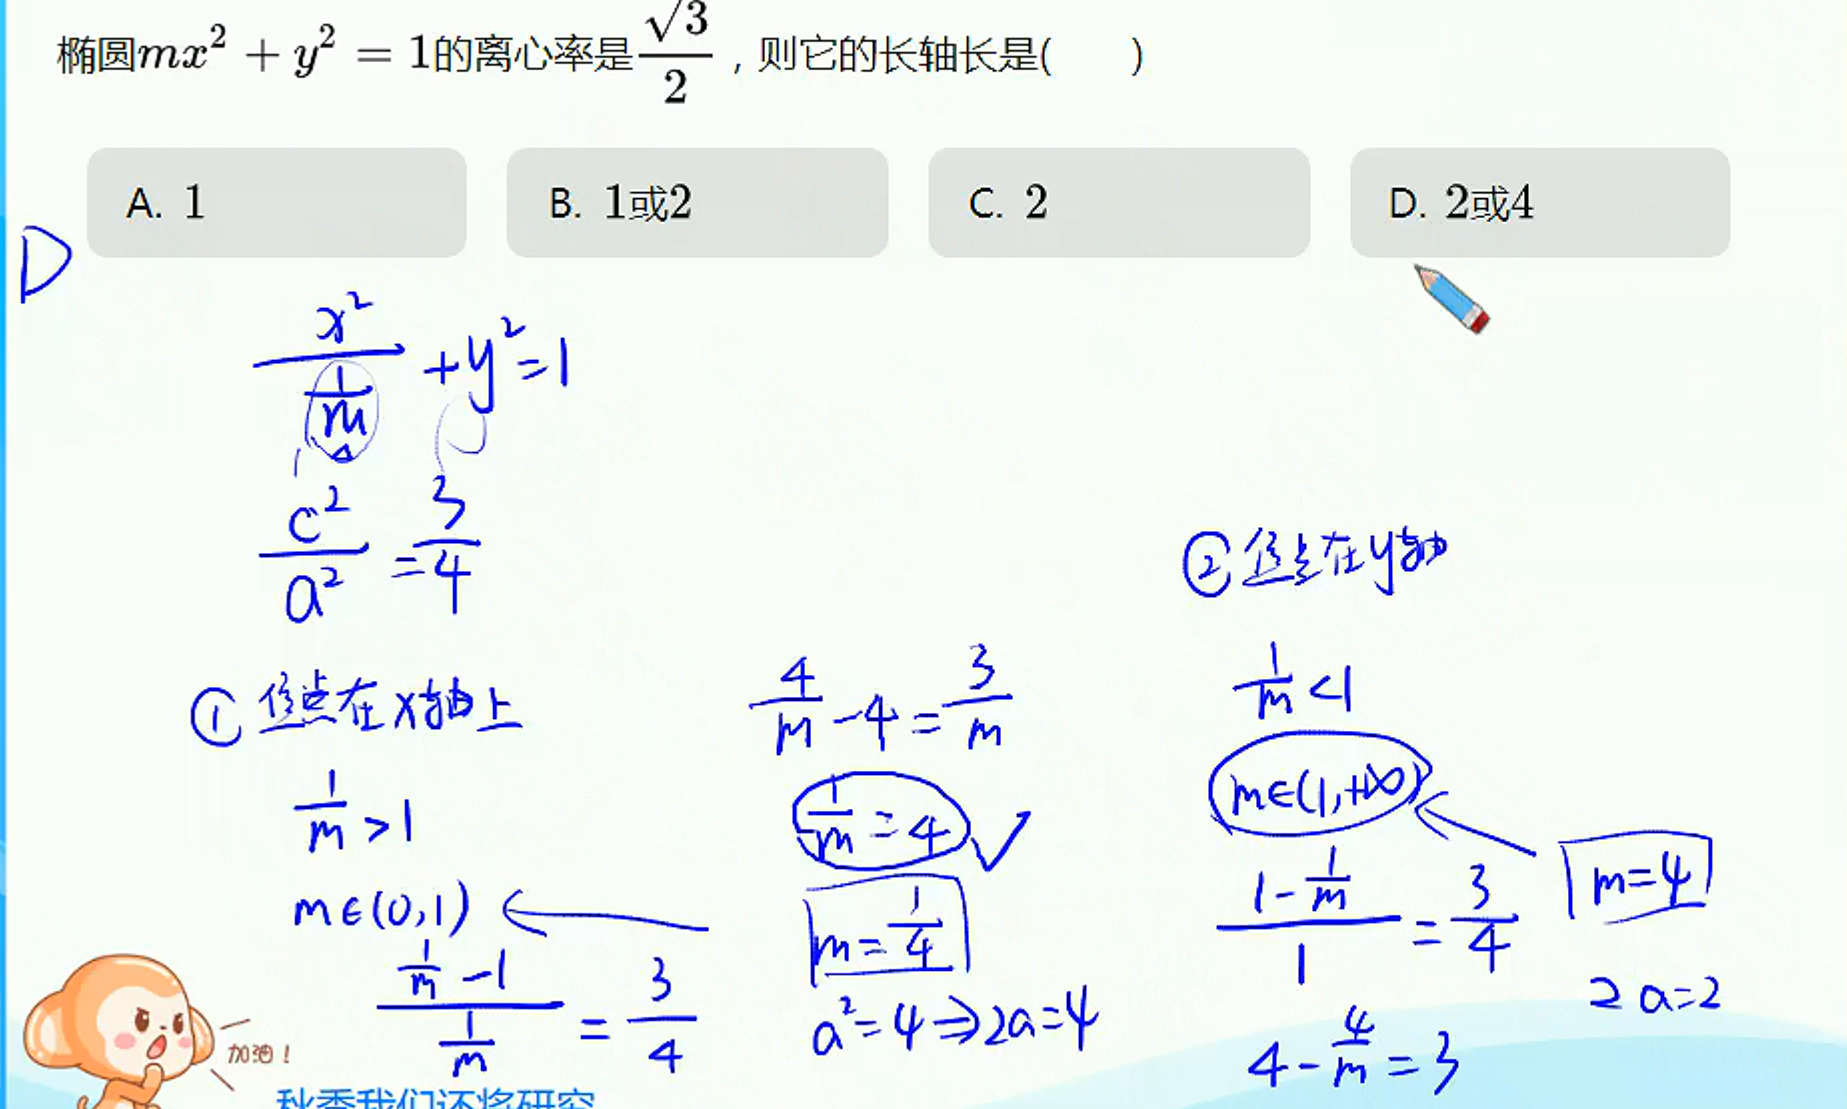 椭圆mx²+y²=1的离心率是√3/2，则它的长轴长是(　　)
A. 1
B. 1或2
C. 2
D. 2或4
D
x²/(1/m)+y²=1
c²/a²=3/4
①焦点在x轴上
1/m>1
m∈(0,1)
(1/m-1)/(1/m)=3/4
4/m-4=3/m
1/m=4 ✓
m=1/4
a²=4⇒2a=4
②焦点在y轴
1/m<1
m∈(1,+∞)
(1-1/m)/1=3/4
4-4/m=3
m=4
2a=2
加油！
秋季我们还将研究